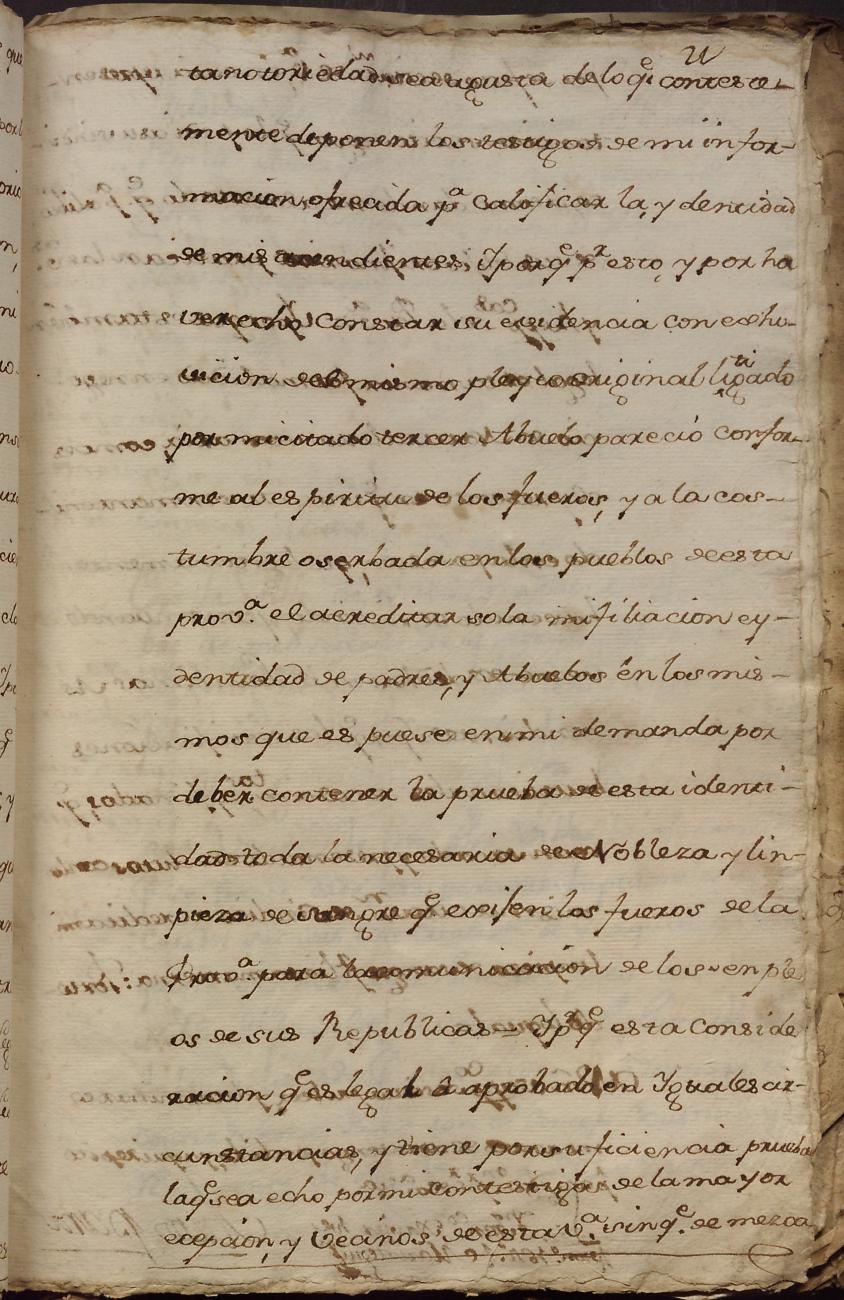 ta notoriedad sea agusta de lo q.e conteste-
mente deponen los testigos de mi infor-
macion ofrecida p.a calificar la ydentidad
de mis acendientes, Y porq.e p.r esto, y por ha
ver echo constar su evidencia con exhi-
vicion del mismo pleyto original litigado
por mi citado tercer Abuelo pareció confor-
me al espiritu de los fueros, y a la cos-
tumbre oserbada en los pueblos de esta
prov.a el acreditar sola mi filiacion e y-
dentidad de padres, y Abuelos en los mis-
mos que espuese en mi demanda por
deber contener la prueba de esta identi-
dad toda la necesaria de Nobleza y lin-
pieza de sangre q.e exisen los fueros de la
Prov.a para la comunicacion de los enple
os de sus Republicas = Y p.r q.e esta conside
racion q.e es legal á aprobado en Yguales cir-
cunstancias, y tiene por suficiencia prueba
la q.e sea echo por mi con testigos de la mayor
ecepcion, y Vecinos de esta V.a sin q.e de mezca